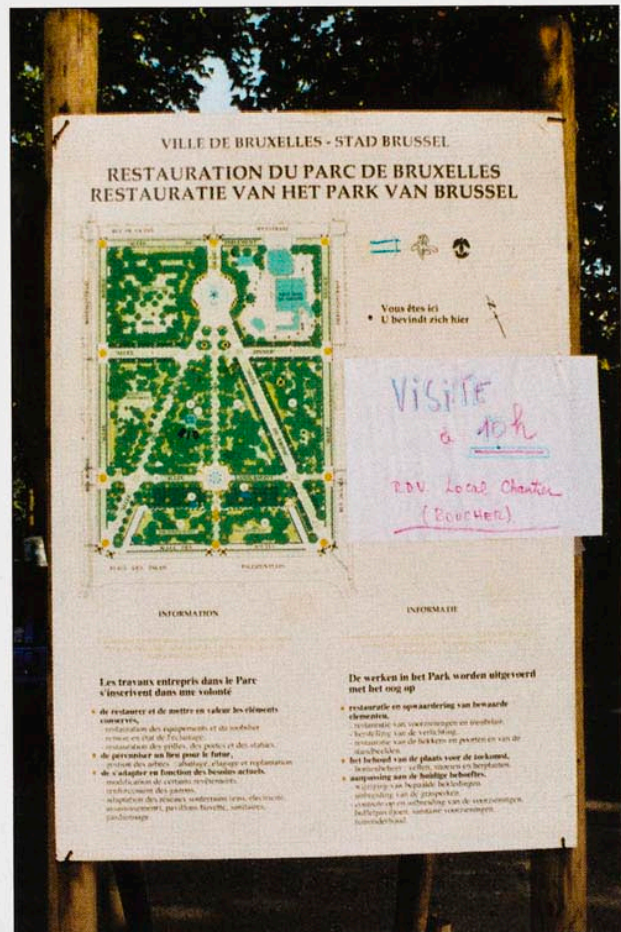 VILLE DE BRUXELLES - STAD BRUSSEL
RESTAURATION DU PARC DE BRUXELLES
RESTAURATIE VAN HET PARK VAN BRUSSEL
Vous êtes ici
U bevindt zich hier
VISITE
à 10h
R.D.V. Local Chantier
(BOUCHER).
PLACE DES PALAIS
PALEIZENPLEIN
INFORMATION
Les travaux entrepris dans le Parc
s'inscrivent dans une volonté
de restaurer et de mettre en valeur les éléments
conservés,
- restauration des équipements et du mobilier
- remise en état de l'éclairage,
- restauration des grilles, des portes et des statues.
de pérenniser un lieu pour le futur,
- gestion des arbres : abattage, élagage et replantation
de s'adapter en fonction des besoins actuels.
- modification de certains revêtements,
- renforcement des gazons,
- adaptation des réseaux souterrains
pavillons buvette, sanitaires,
jardinage.
INFORMATIE
De werken in het Park worden uitgevoerd
met het oog op
restauratie en opwaardering van bewaarde
elementen,
- restauratie van voorzieningen en meubilair,
- herstelling van de verlichting,
- restauratie van de hekkens en poorten en van de
standbeelden.
het behoud van de plaats voor de toekomst,
- bomenbeheer : vellen, snoeien en herplanten.
aanpassing aan de huidige behoeften.
- wijziging van bepaalde bekledingen
- uitbreiding van de grasperken
en uitbreiding van de voorzieningen,
sanitaire voorzieningen,
tuinonderhoud.